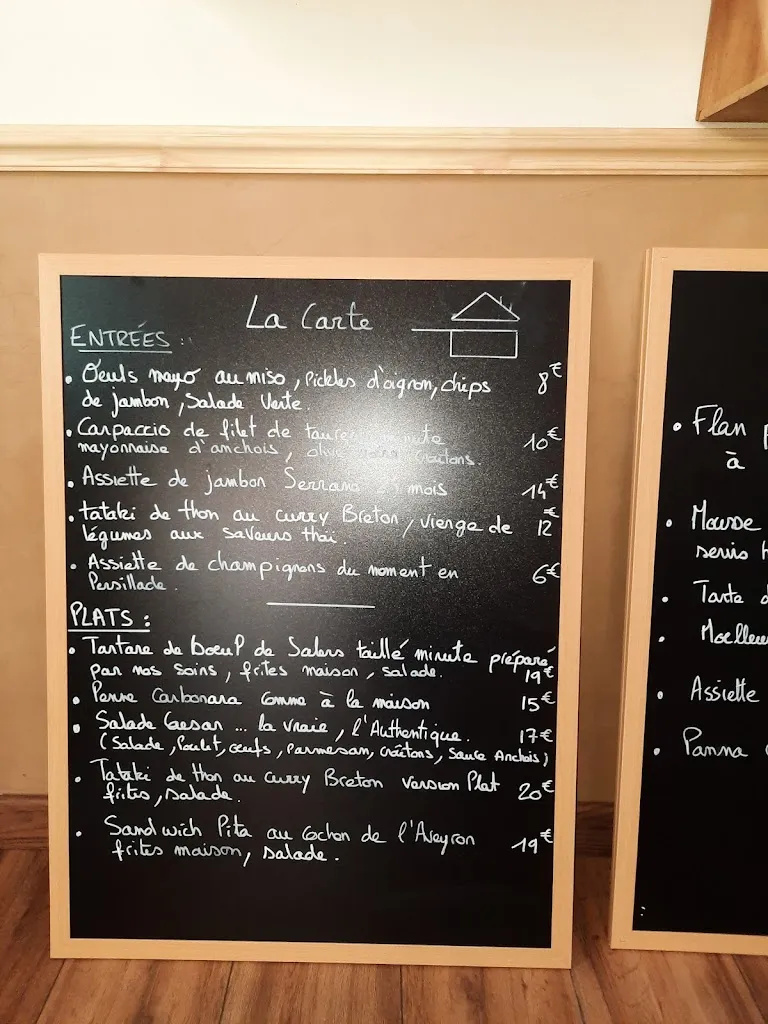 La Carte
ENTRÉES :
• Oeufs mayo au miso, Pickles d'oignon, chips 8€
de jambon, Salade Verte.
• Carpaccio de filet de minute 10€
mayonnaise d'anchois, croûtons.
• Assiette de jambon Serrano mois 14€
• tataki de thon au curry Breton, vierge de 12€
légumes aux saveurs thaï.
• Assiette de champignons du moment en 6€
Persillade.
PLATS :
• Tartare de boeuf de Salers taillé minute préparé
par nos soins, frites maison, salade. 19€
• Penne Carbonara comme à la maison 15€
• Salade Cesar ... la vraie, l'Authentique. 17€
(Salade, Poulet, oeufs, parmesan, croûtons, Sauce Anchois)
• Tataki de thon au curry Breton version Plat 20€
frites, salade.
• Sandwich Pita au Cochon de l'Aveyron 19€
frites maison, salade.
• Flan
à
• Mousse
• Tarte
•
• Assiette
• Panna